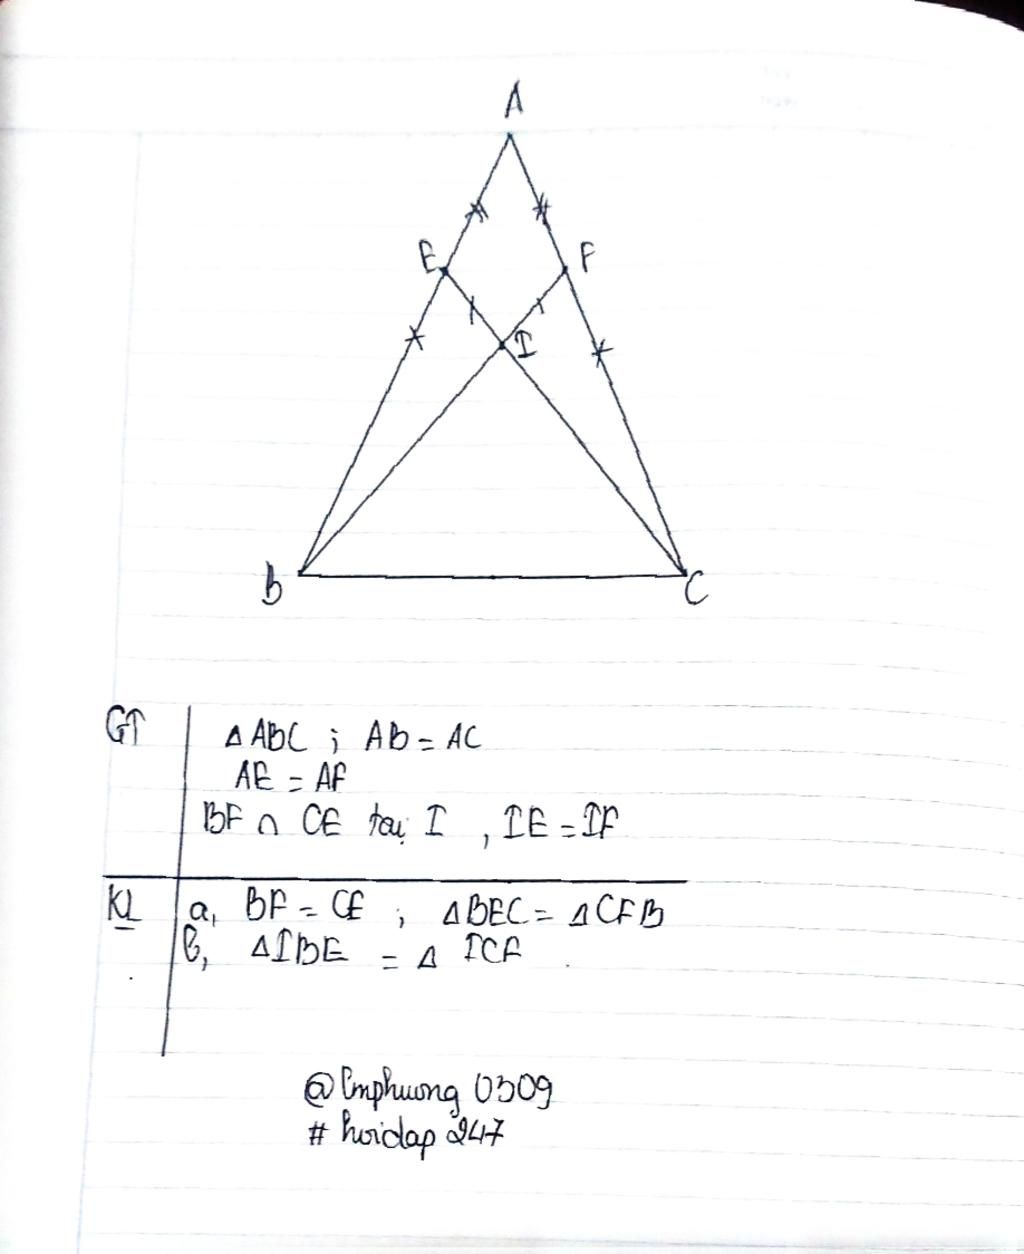 A
E F
I
B C
GT ΔABC ; AB = AC
AE = AF
BF ∩ CE tại I , IE = IF
KL a, BF = CE ; ΔBEC = ΔCFB
b, ΔIBE = Δ ICF
@lmphuong 0309
# hoidap 247